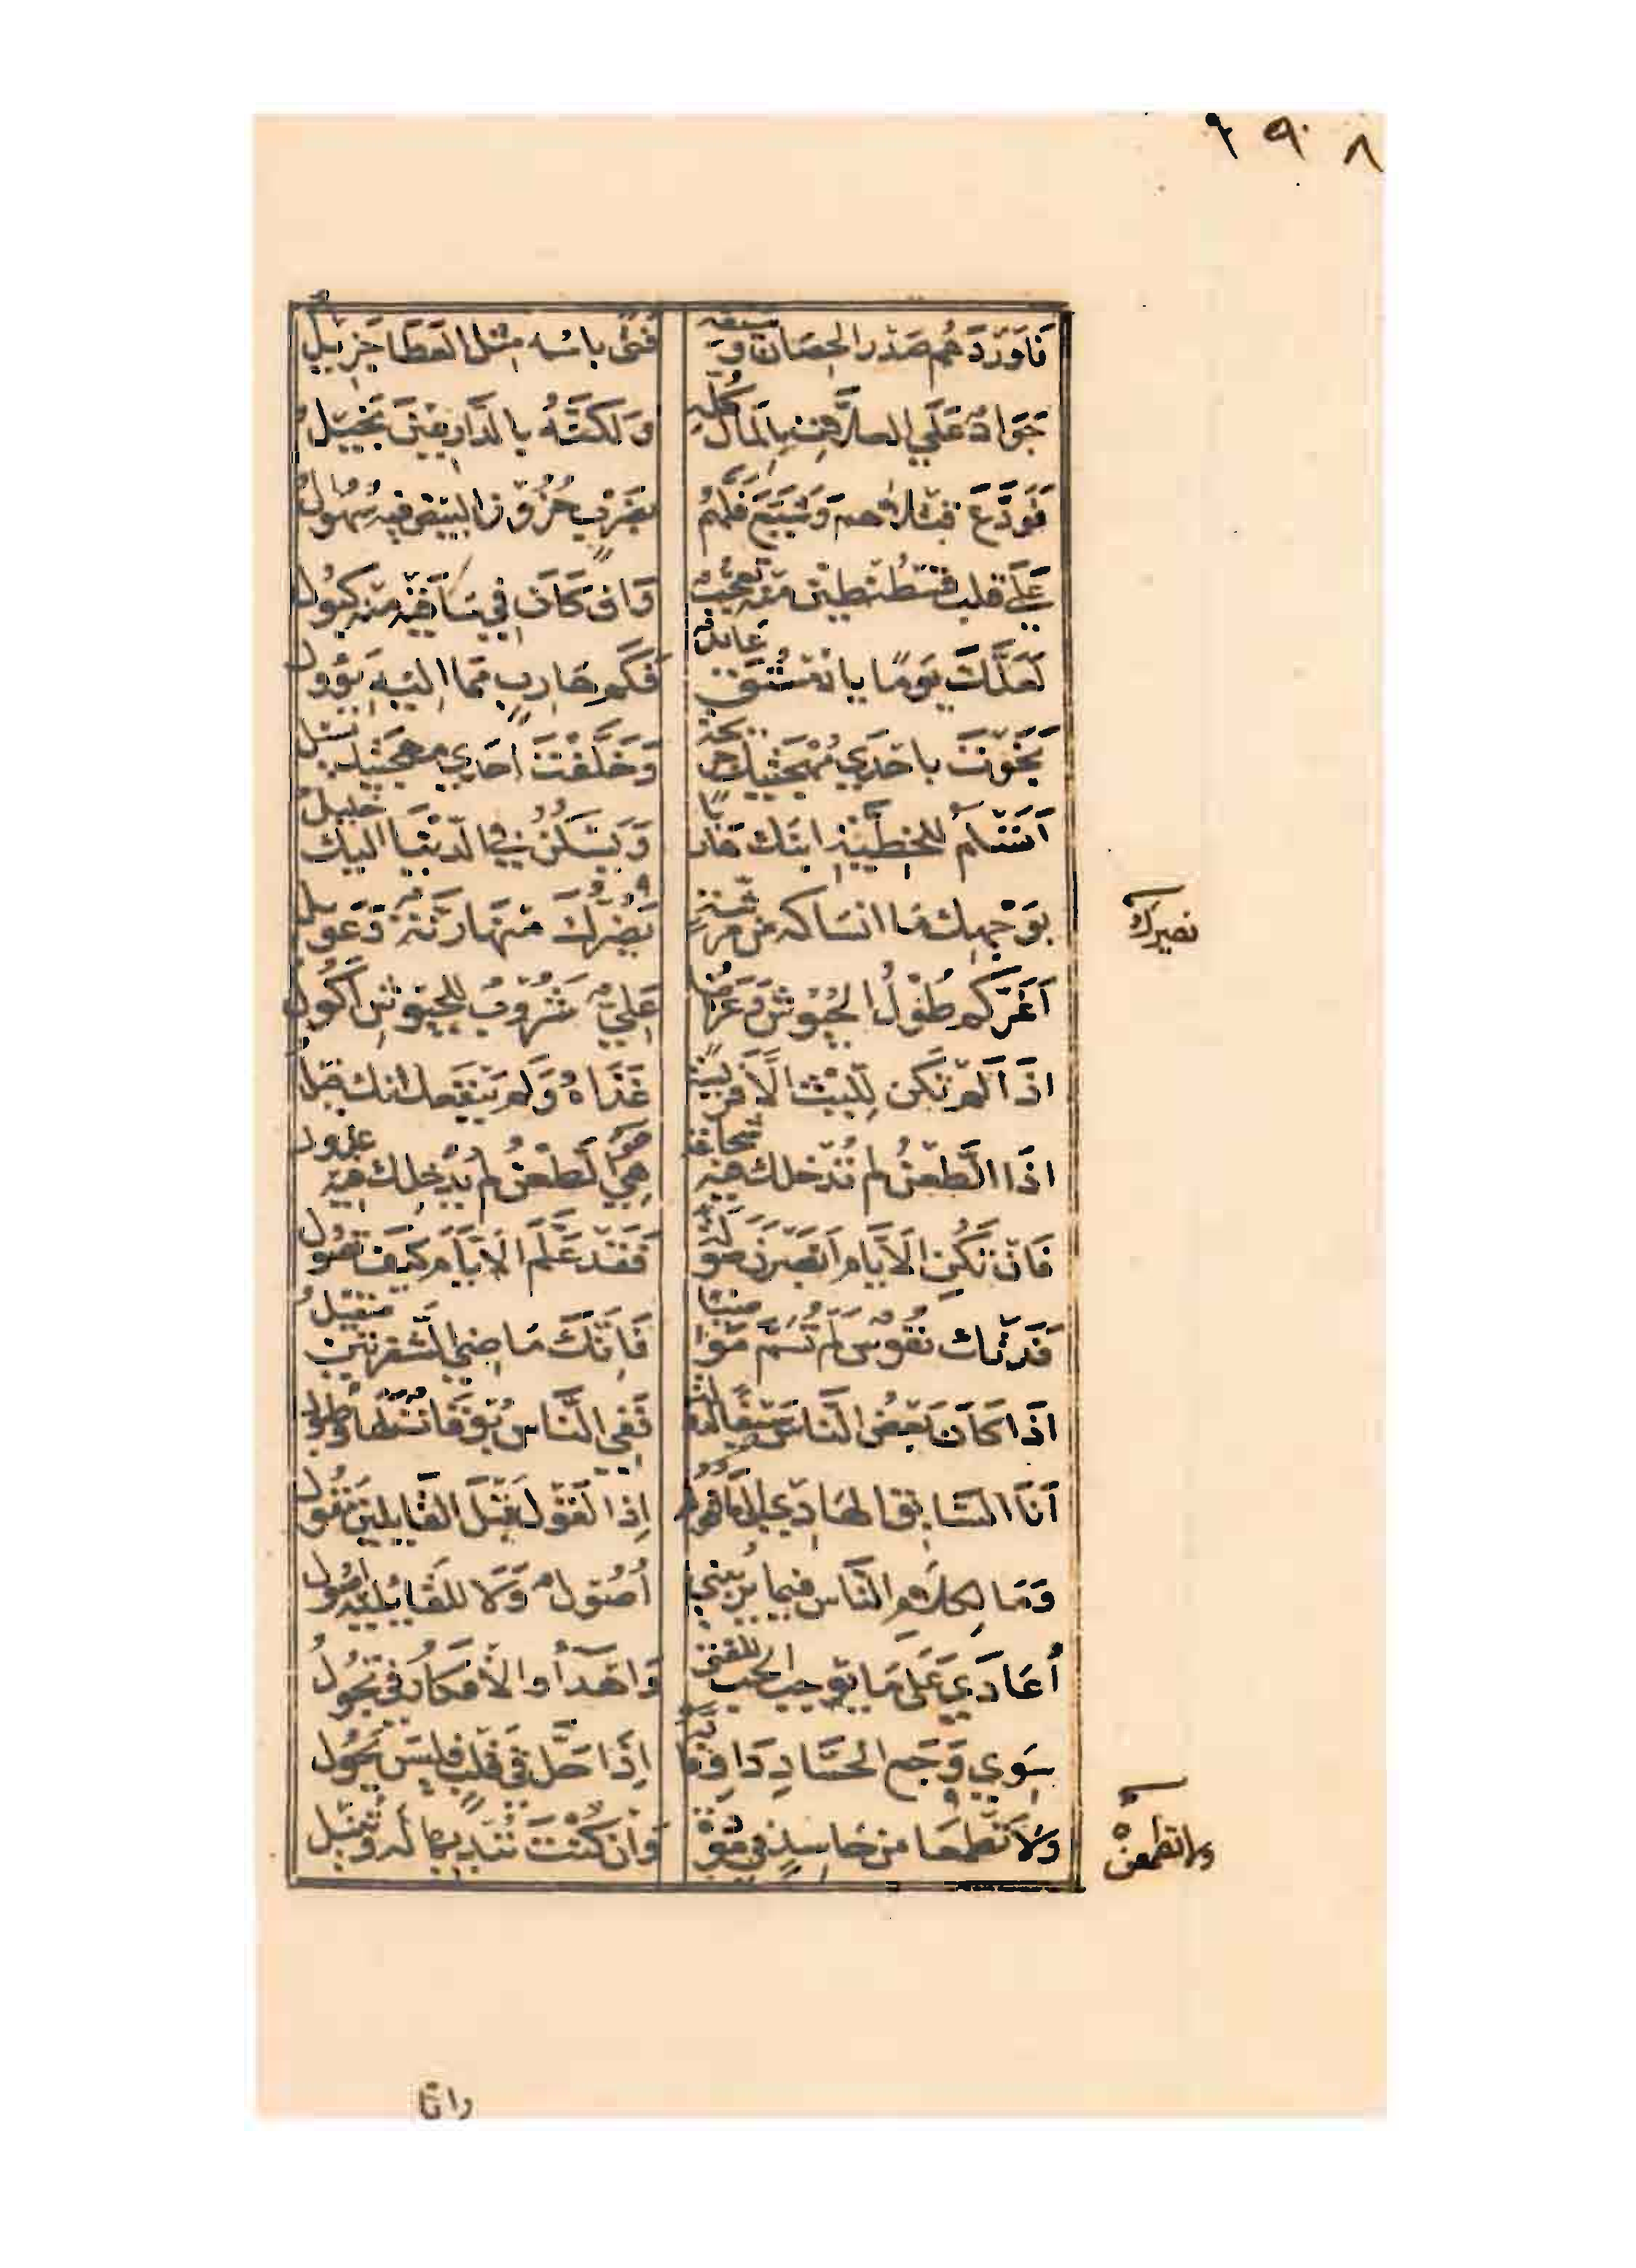 ١٩٠٨
فَاَورَدَهُم صَدْر الحِصَان وَسَيفه فَتًى باسُه مثل العَطَا جَزِيلُ
جَوَادٌ عَلَي العلاَّت بِالمَال كُلِّهِ وَلكنَّهُ بالدَّارعِينَ بَخِيلُ
فَوَدَّعَ قتلاهم وَشَيَّعَ فَلَّهُم بِضَرْبٍ حُزُون البَيض فيه سُهُولُ
عَلَي قلب قُسْطُنطِين منه تَعَجُّبٌ وَان كَانَ في سَاقَيْه منه كبُولُ
لَعَلَّكَ يَومًا يا دُمُسْتُق عَائدٌ فَكَم هَارِبٍ مما اليه يَؤُول
نَجَوْتَ باحْدَي مُهْجَتَيْكَ جَريحَةً وَخَلَّفْتَ احدي مهجتيك تَسِيل
اَتُسْلِمُ للخطِّيَّةِ ابنَك هَاربًا وَيَسْكُنُ في الدنْيَا اليك خَليلُ
بوَجْهِكَ مَا انسَاكه من مرِشَّةٍ نَصِيرُكَ منهَا رَنَّةٌ وَعَوِيلُ
نصيرك
اَغَرَّكم طُوْلُ الجُيُوش وَعَرْضُهَا عَلِيٌّ شَرُوبٌ للجيُوشِ اَكُولُ
اذَا لَم تَكن لِلَّيْث الَّا فَرِيسَةً غَذَاهُ وَلَم يَنْفَعك انك فيلُ
اذَا الطَّعْنُ لم تُدْخلك فيه شجاعةٌ هِيَ الطَّعْنُ لم يُدْخِلك فيه عَذول
فَان تَكُنِ الاَيَّام اَبْصَرْنَ صَوْلَهُ فَقَد عَلَّمَ الاَيَّامَ كَيفَ تصُول
فَدَتْكَ نفُوسٌ لم تُسَمَّ مَوَاضِيًا فَانَّكَ مَاضِي الشفرتَين صَقيلُ
اذَا كَانَ بَعضُ النَّاس سَيفًا لدولةٍ فَفِي النَّاس بُوقَاتٌ لَهَا وَطبُول
اَنَا السَّابق الهَادي الي ما اقوله اِذا لقَول قَبْلَ القَايلين مَقُول
وَمَا لِكَلاَمِ النَّاس فيما يُرِيبُني اُصُولٌ وَلَا للقَائِليه اصُول
اُعَادَي عَلى مَا يوجب الحب للفتى وَاهْدَأُ والاَفكَارُ فيَّ تجُولُ
سِوَي وَجَعِ الحسَّادِ دَاوِ فَانَّه اِذَا حَلَّ في قَلْبٍ فليسَ يَحُول
وَلاَ تطمعَا من حَاسِدٍ في مَوَدَّةٍ وَان كُنْتَ تُبْدِيهَا لَه وَتُنِيْل
ولا تطمعنْ
وانا